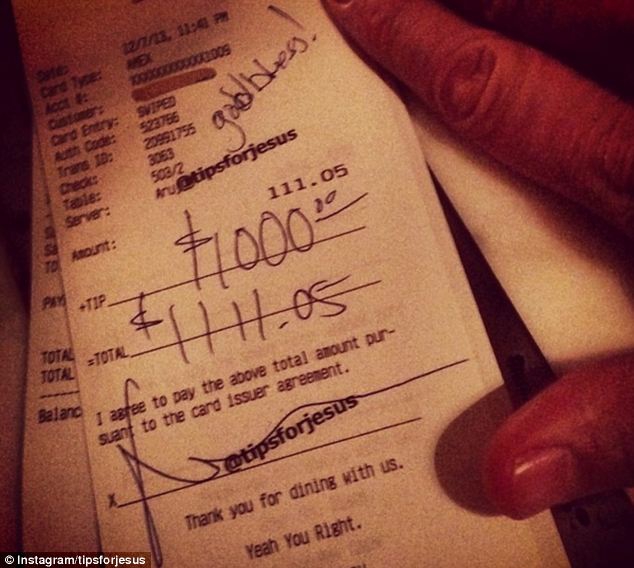 Date: 12/7/13, 11:41 PM
Card Type: AMEX
Acct #: XXXXXXXXXXX1009
Customer:
Card Entry: SWIPED
Auth Code: 523766
Trans ID: 20991755
Check: 3063
Table: 503/2
Server: Aru
god bless!
@tipsforjesus
Amount: 111.05
+TIP $1000.00
=TOTAL $1111.05
I agree to pay the above total amount pur-
suant to the card issuer agreement.
X
@tipsforjesus
Thank you for dining with us.
Yeah You Right.
PAY
TOTAL
TOTAL
Balanc
© Instagram/tipsforjesus